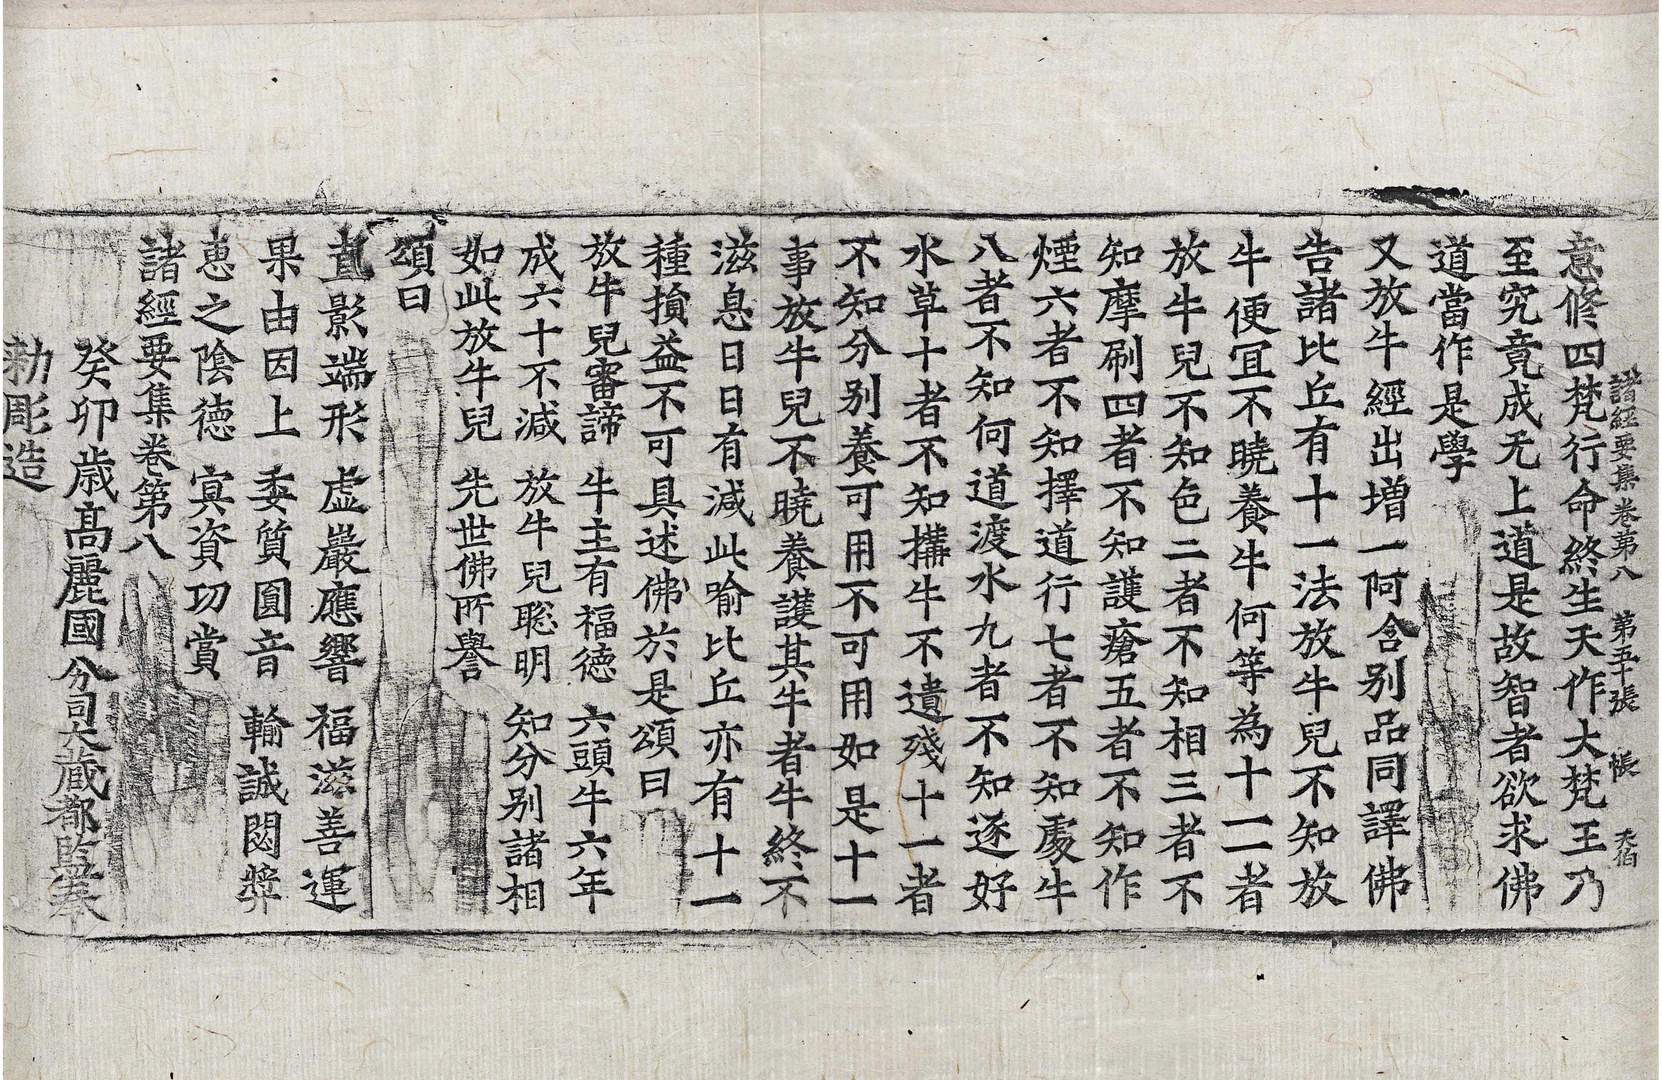 諸經要集卷第八 第五十張 帳 天伯
意修四梵行命終生天作大梵王乃
至究竟成无上道是故智者欲求佛
道當作是學
又放牛經出增一阿含别品同譯佛
告諸比丘有十一法放牛兒不知放
牛便宜不曉養牛何等為十一一者
放牛兒不知色二者不知相三者不
知摩刷四者不知護瘡五者不知作
煙六者不知擇道行七者不知處牛
八者不知何道渡水九者不知逐好
水草十者不知㩲牛不遺殘十一者
不知分别養可用不可用如是十一
事放牛兒不曉養護其牛者牛終不
滋息日日有減此喻比丘亦有十一
種損益不可具述佛於是頌曰
放牛兒審諦 牛主有福德 六頭牛六年
成六十不減 放牛兒聡明 知分别諸相
如此放牛兒 先世佛所譽
頌曰
直影端形 虛嚴應響 福滋善運
果由因上 委質圓音 輸誠閎獎
恵之陰德 㝠資功賞
諸經要集卷第八
癸卯歳高麗國分司大藏都監奉
勑彫造